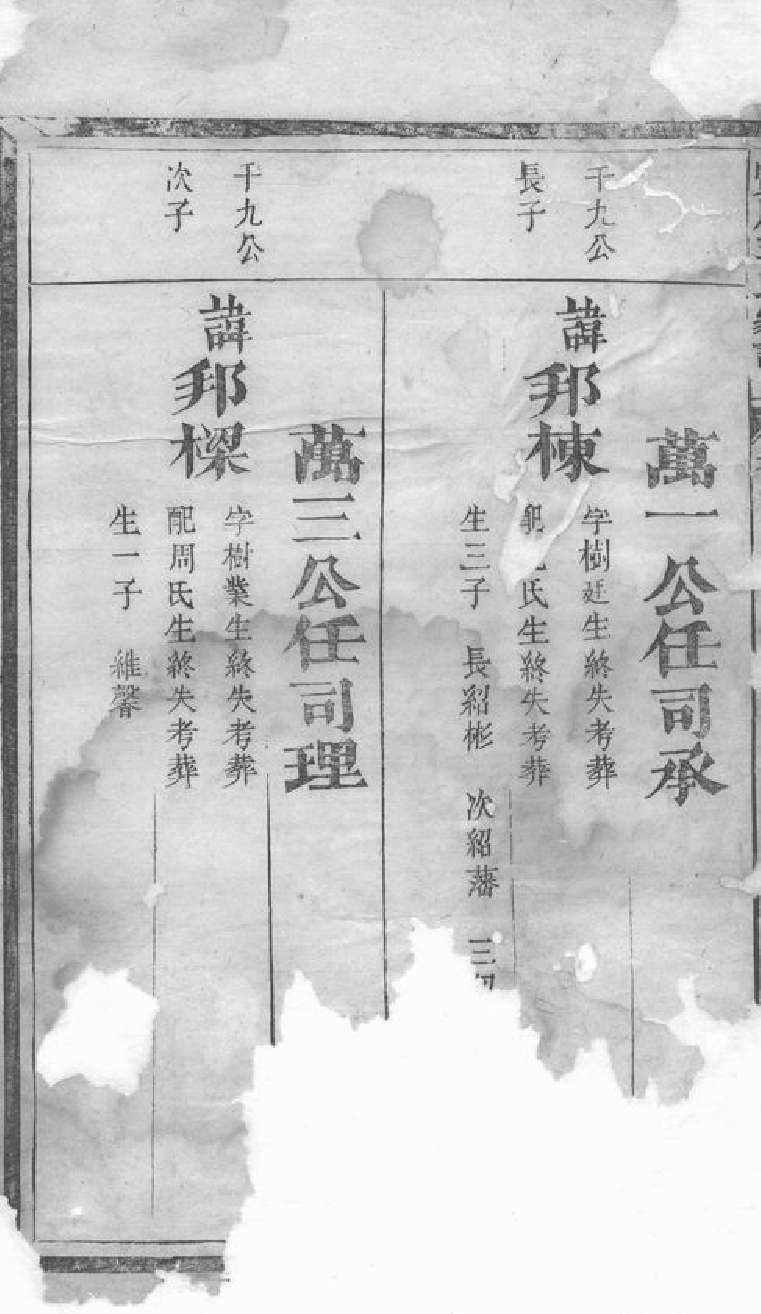 千九公
長子
萬一公任司承
諱邦棟
字樹廷生終失考葬
配 氏生終失考葬
生三子 長紹彬 次紹藩 三
千九公
次子
萬三公任司理
諱邦樑
字樹業生終失考葬
配周氏生終失考葬
生一子 維馨